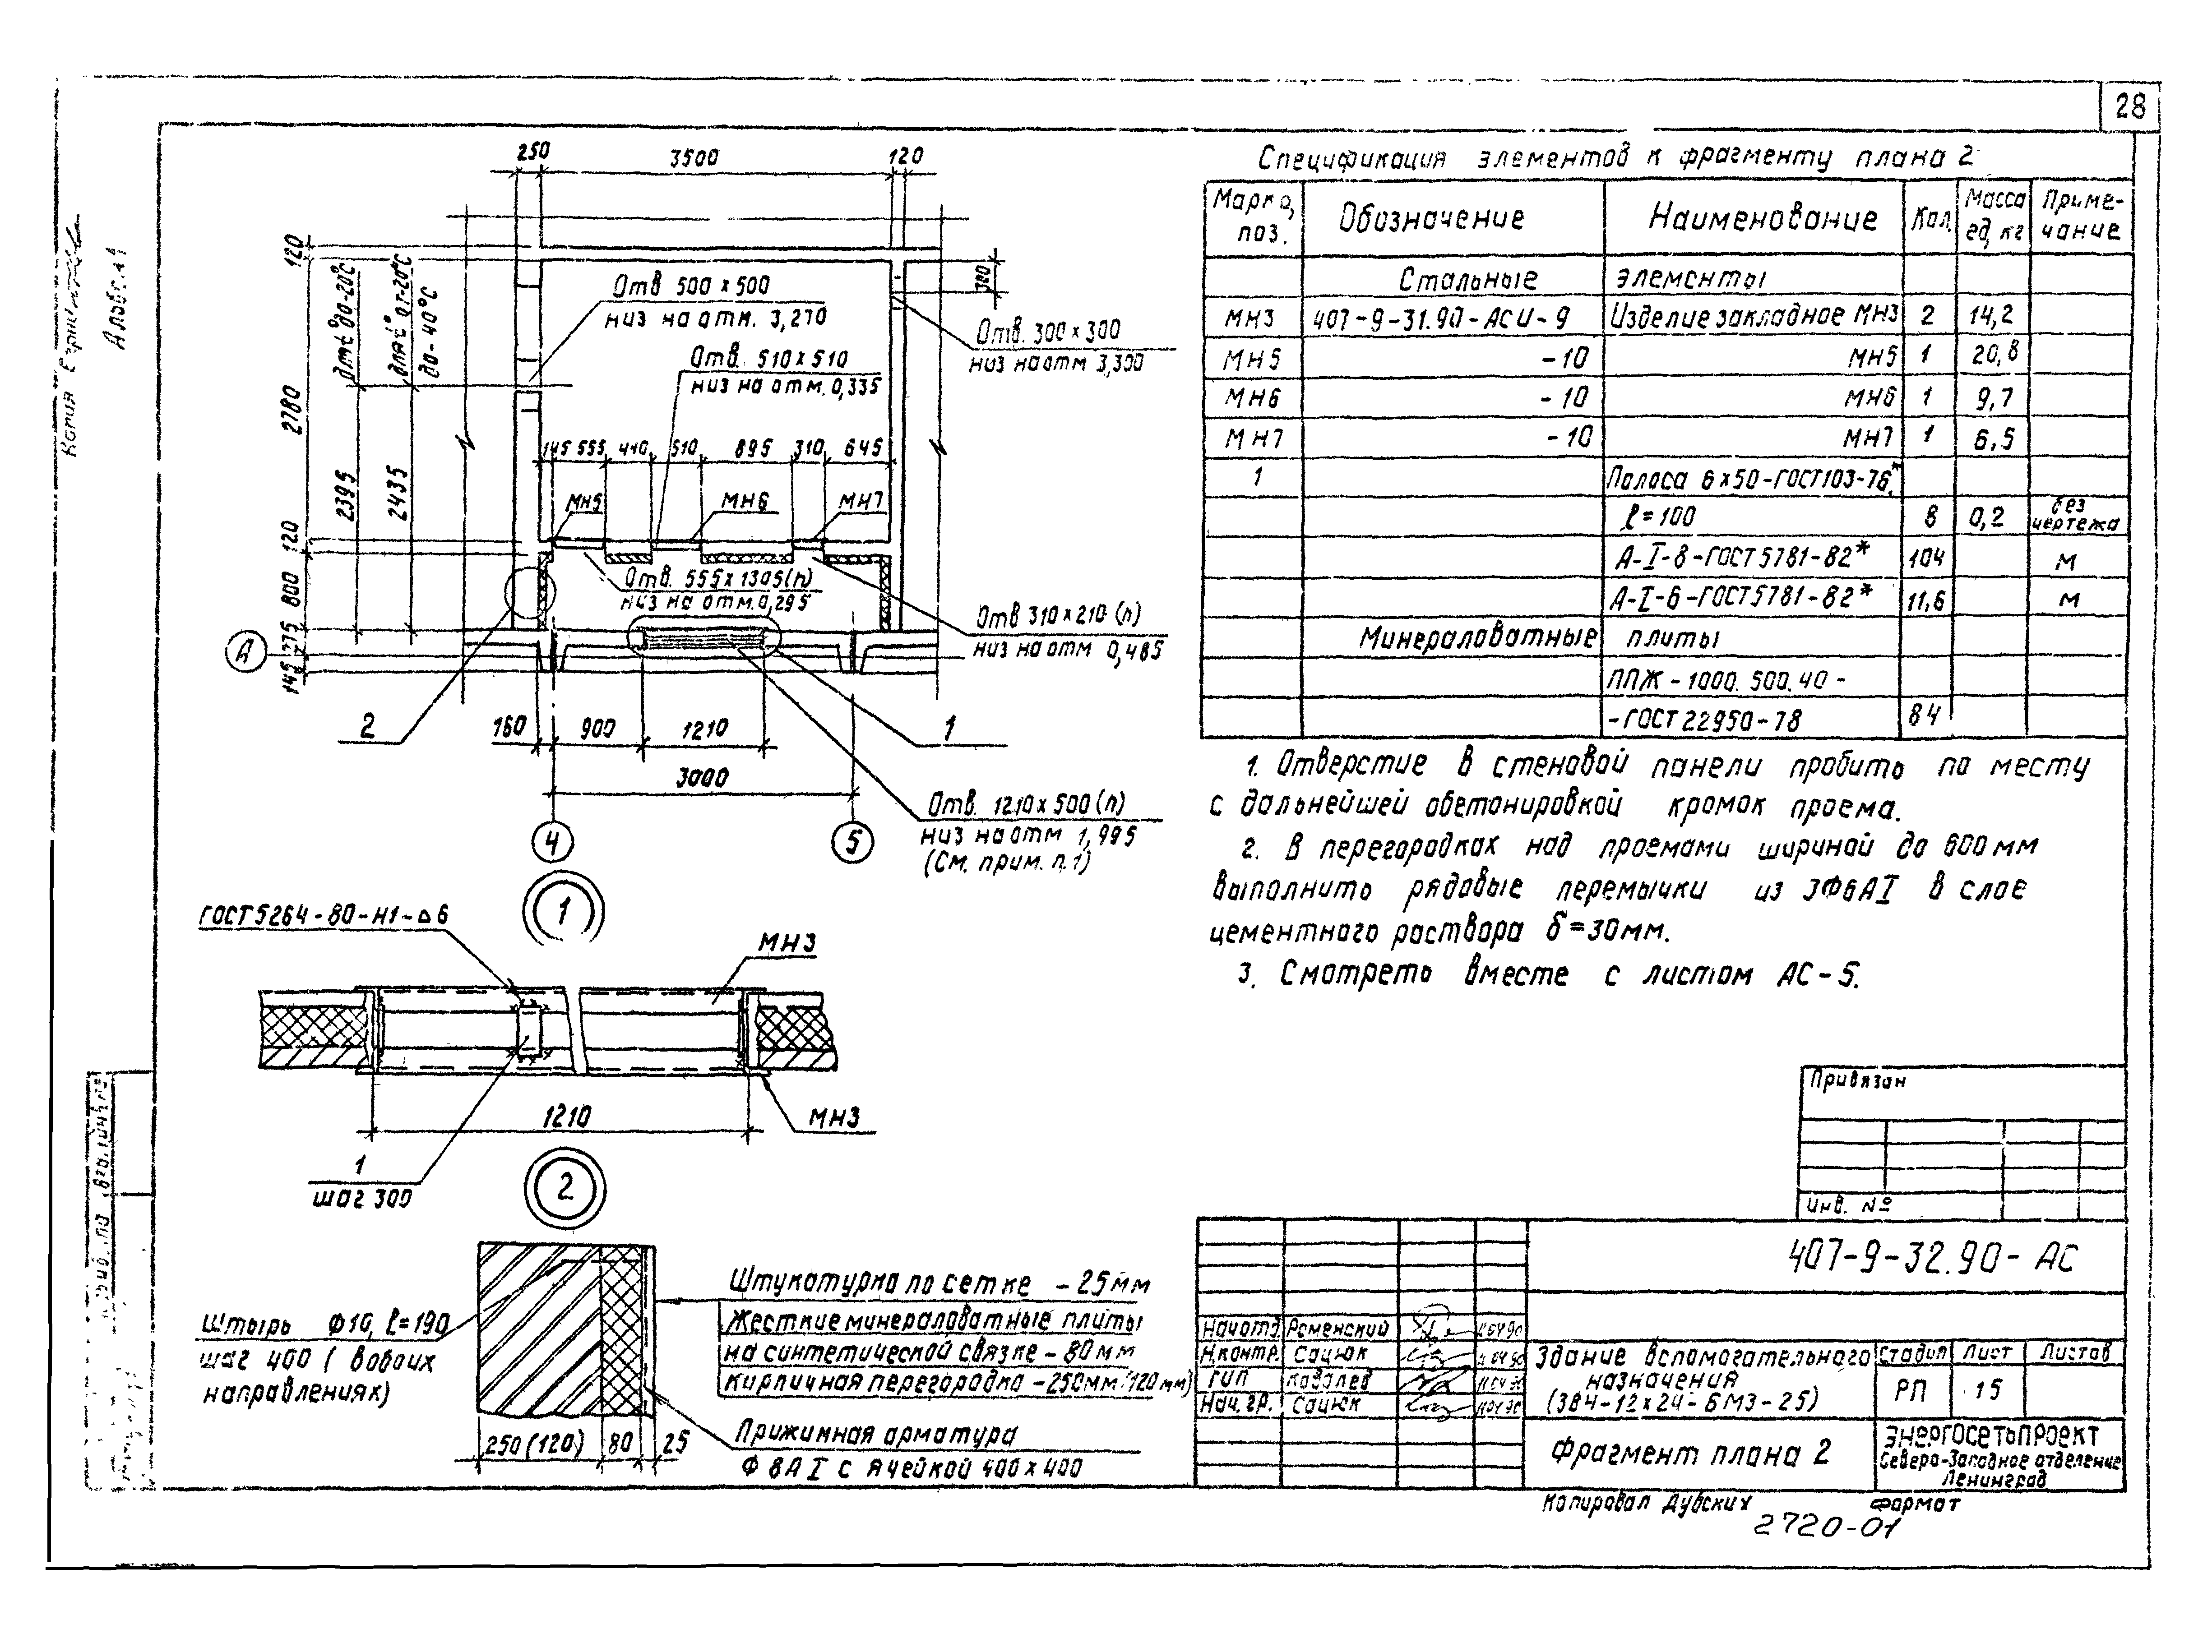 28
Альбом 1
250 3500 120
120
2780
120
800
275
145
для t° до -20°С
для t° от -20°С
до -40°С
2395
2435
300
Отв 500 х 500
низ на отм. 3,270
Отв. 510 х 510
низ на отм. 0,335
Отв. 300 х 300
низ на отм 3,300
145 555 440 510 895 310 645
МН5 МН6 МН7
Отв. 555х1305(h)
низ на отм. 0,295
Отв 310 х 210 (h)
низ на отм 0,485
А
2
160 900 1210
1
3000
4
5
Отв. 1210х500(h)
низ на отм 1,995
(См. прим. п.1)
1
ГОСТ 5264-80-Н1-Δ6
МН3
1210
МН3
1
шаг 300
2
Штырь Ф10, ℓ=190
шаг 400 ( в обоих
направлениях)
Штукатурка по сетке - 25мм
Жесткие минераловатные плиты
на синтетической связке - 80мм
Кирпичная перегородка - 250мм (120 мм)
Прижимная арматура
Ф 8А I с ячейкой 400х400
250 (120) 80 25
Спецификация элементов к фрагменту плана 2
Марка, поз. Обозначение Наименование Кол. Масса ед, кг Приме- чание
Стальные элементы
МН3 407-9-31.90-АСИ-9 Изделие закладное МН3 2 14,2
МН5 -10 МН5 1 20,8
МН6 -10 МН6 1 9,7
МН7 -10 МН7 1 6,5
1 Полоса 6х50-ГОСТ103-76*
ℓ=100 8 0,2 без чертежа
А-I-8-ГОСТ5781-82* 104 М
А-I-6-ГОСТ5781-82* 11,6 М
Минераловатные плиты
ППЖ-1000.500.40-
-ГОСТ 22950-78 84
1. Отверстие в стеновой панели пробить по месту
с дальнейшей обетонировкой кромок проема.
2. В перегородках над проемами шириной до 600мм
выполнить рядовые перемычки из 3Ф6АI в слое
цементного раствора δ=30мм.
3. Смотреть вместе с листом АС-5.
Привязан
Инв. №
407-9-32.90-АС
Нач отд Роменский
Н.контр. Сацюк
ГИП Ковалев
Нач. гр. Сацюк
Здание вспомогательного
назначения
(ЗВЧ-12х24-БМЗ-25)
Стадия Лист Листов
РП 15
Фрагмент плана 2
ЭНЕРГОСЕТЬПРОЕКТ
Северо-Западное отделение
Ленинград
Копировал Дубских Формат
2720-01